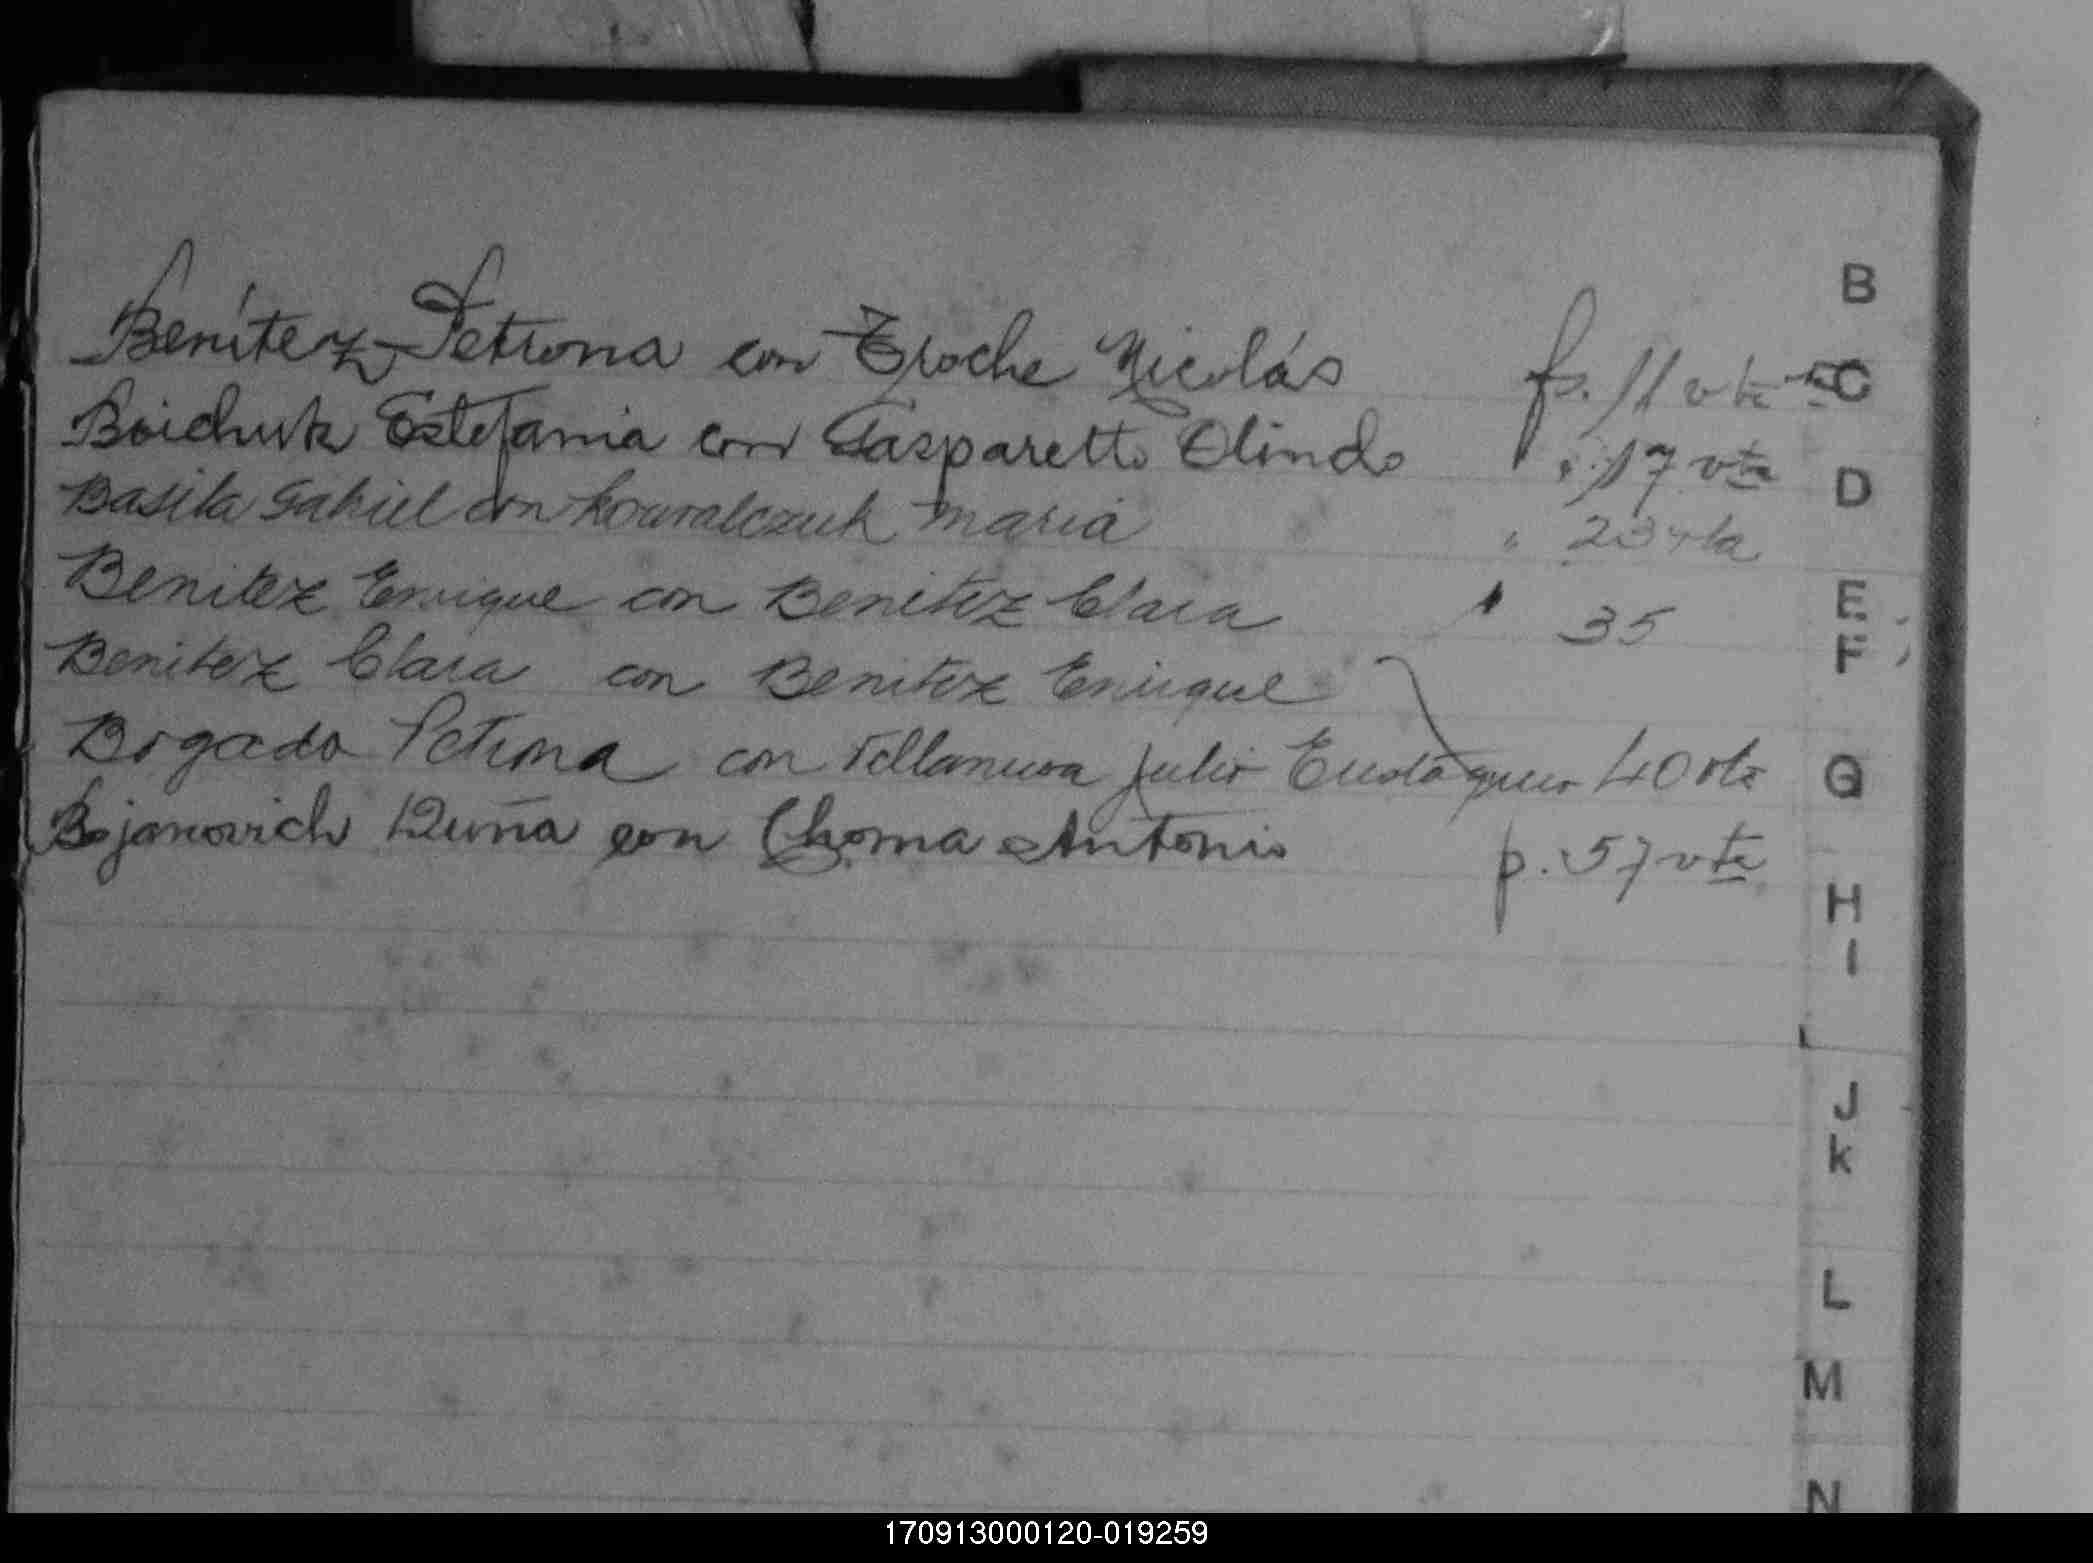 B
Benítez Petrona con Eroche Nicolás fs. 11 vta
C
Boichuk Estefania con Gasparetto Olindo " 17 vta
D
Basila Gabriel con Kowalczuk maria " 23 vta
Benitez Enrique con Benitez Clara " 35
E
F
Benitez Clara con Benitez Enrique
Bogado Petrona con Villanueva Julio 40 vta
G
Bojanovich con Choma Antonio p. 57 vta
H
I
J
k
L
M
N
170913000120-019259